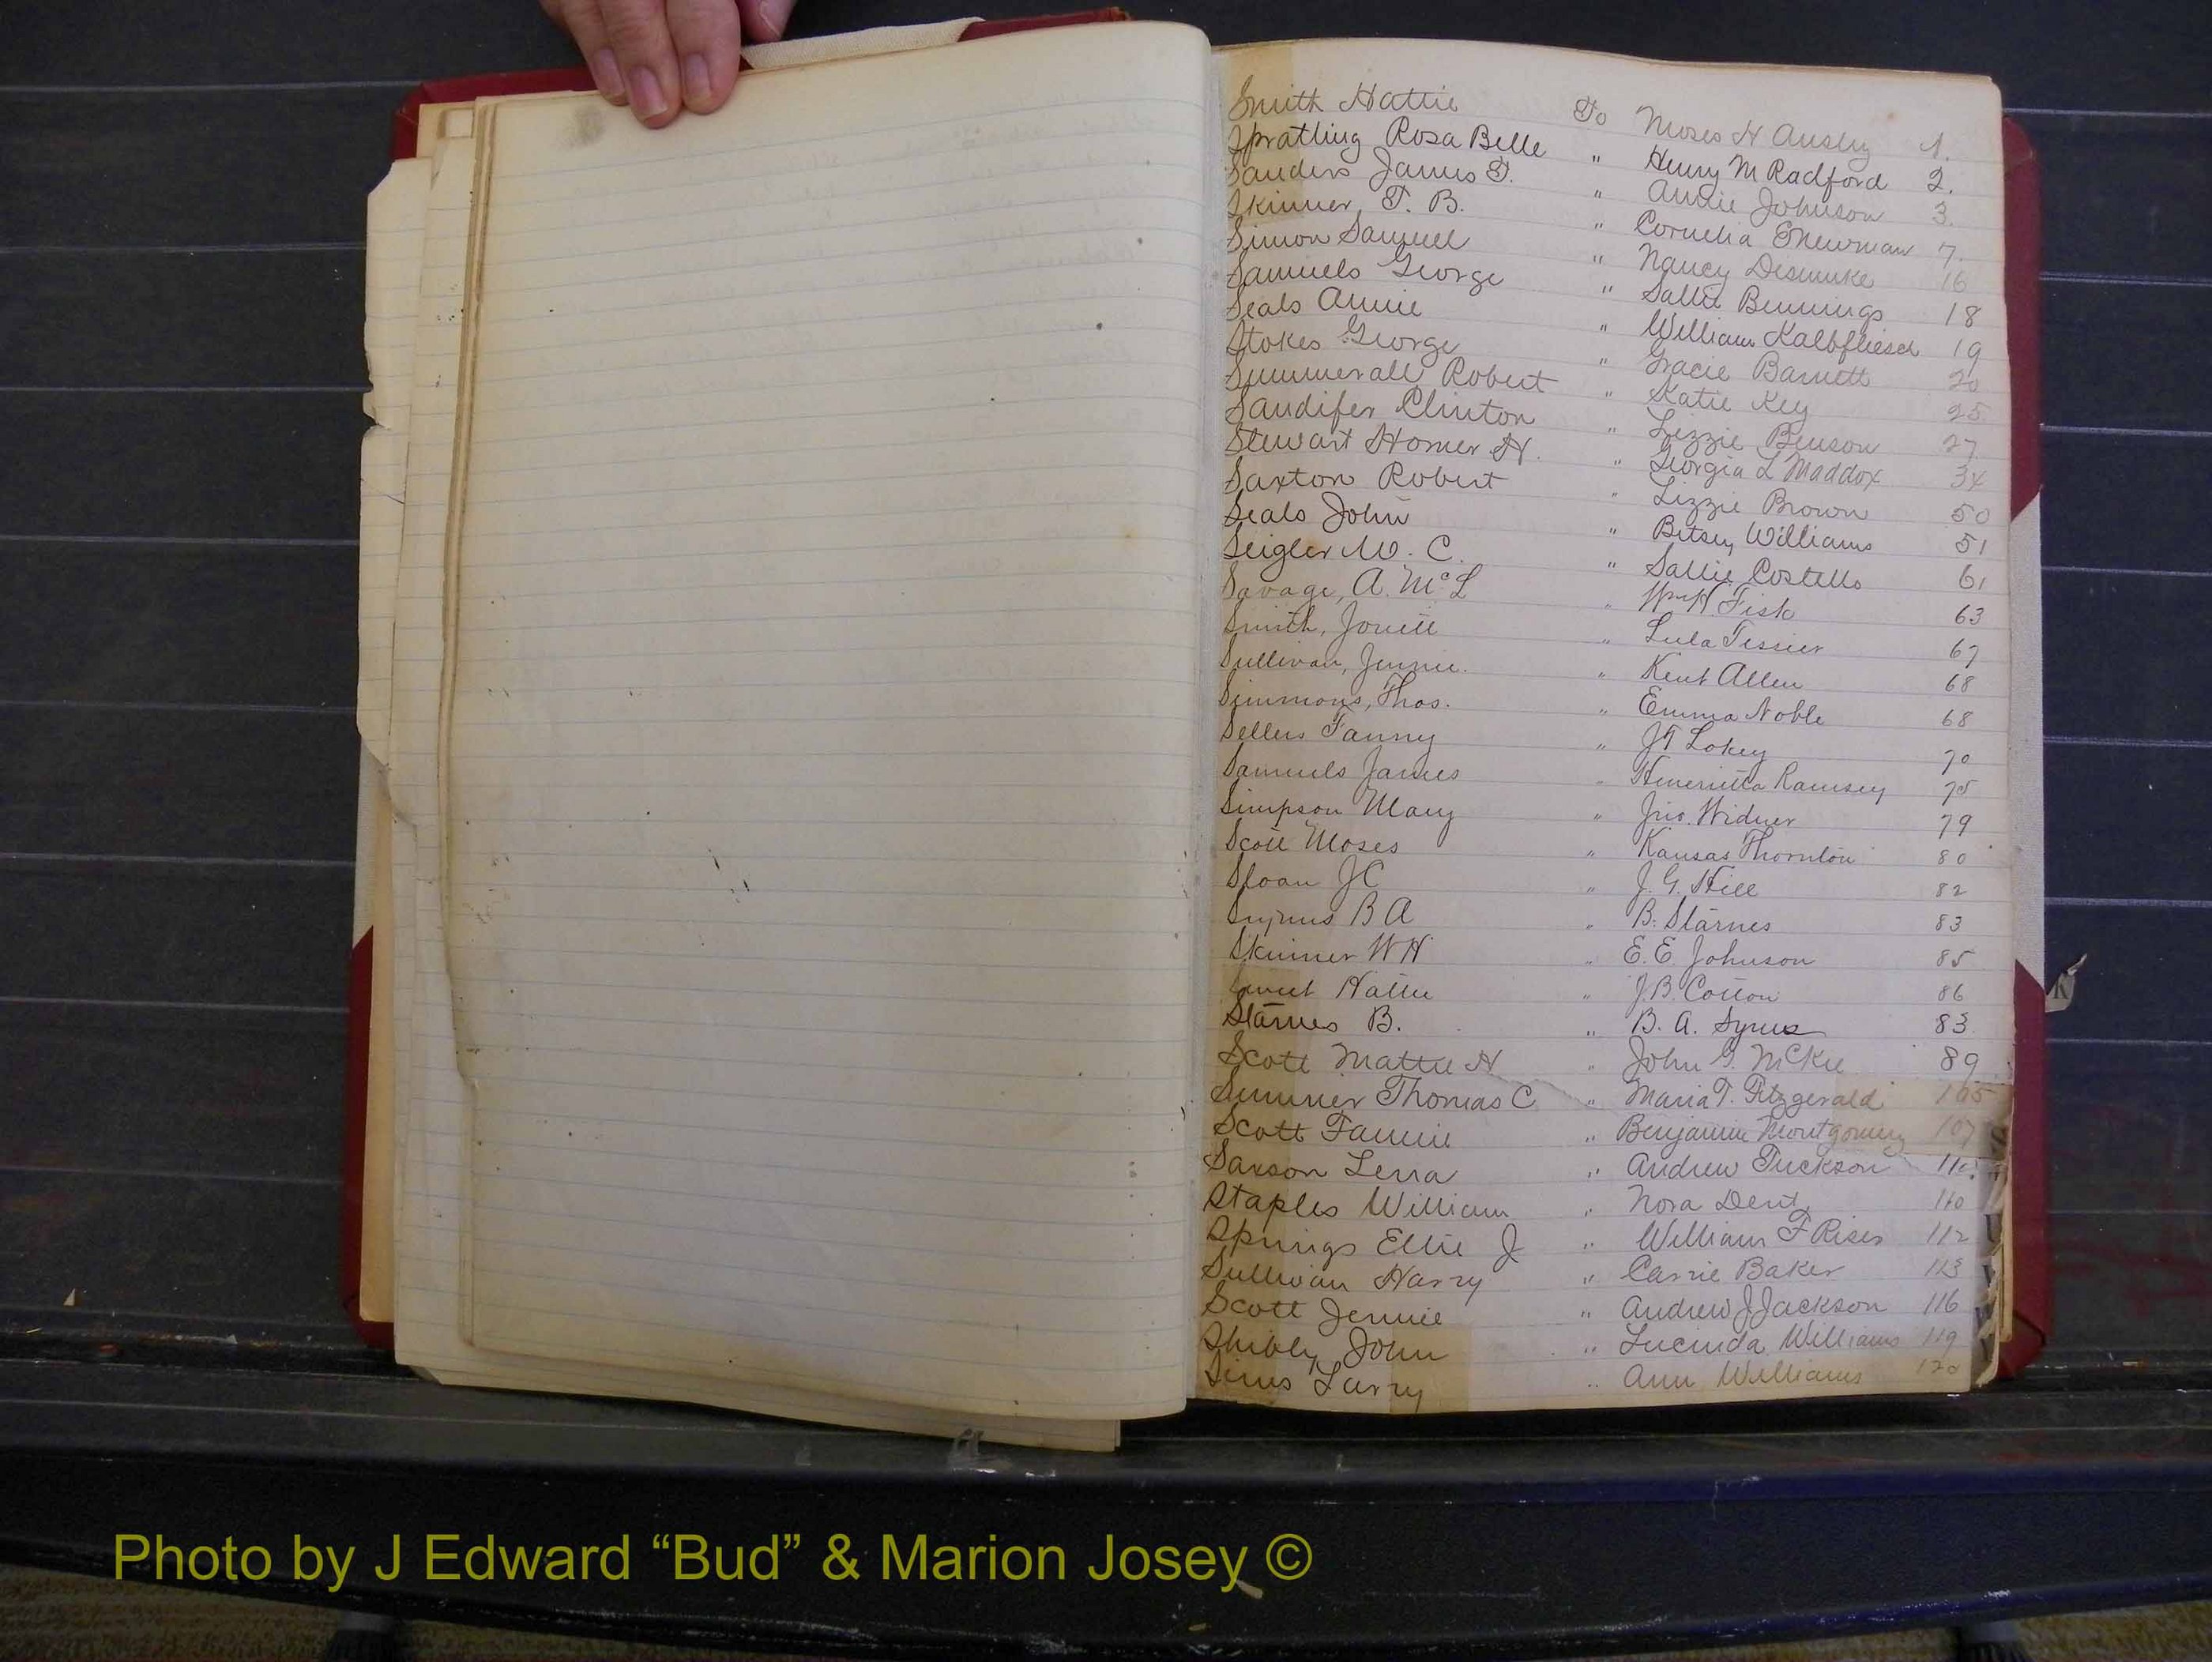 Smith Hattie To Moses H Ansley 1.
Spratling Rosa Belle " Henry M Radford 2.
Sanders James D. " Annie Johnson 3.
Skinner T. B. " Cornelia E Newman 7.
Simon Samuel " Nancy Desmuke 16
Samuels George " Sallie Bennings 18
Seals Annie " William Kalbfliesch 19
Stokes George " Gracie Barnett 20
Summerall Robert " Katie Key 25
Sandifer Clinton " Lizzie Benson 27
Stewart Homer H. " Georgia L Maddox 34
Saxton Robert " Lizzie Brown 50
Seals John " Betsey Williams 51
Seigler W. C. " Sallie Costello 61
Savage, A. McL " Wm H. Fisk 63
Smith, " Lula Tessier 67
Sullivan, Jennie. " Kent Allen 68
Simmons, Thos. " Emma Noble 68
Sellers Fanny " J T Lokey 70
Samuels James " Henrietta Ramsey 75
Simpson Mary " Jno. Widner 79
Scott Moses " Kansas Thornton 80
Sloan J C " J. G. Hill 82
B A " B. Starnes 83
Skinner W H " E. E. Johnson 85
Hattie " J. B. Cotton 86
Starnes B. " B. A. Syms 83
Scott Mattie H " John G. McKie 89
Sumner Thomas C " Maria T. Fitzgerald 105
Scott Fannie " Benjamin Montgomery 107
Saxson Lena " Andrew Tuckson 110
Staples William " Nora Dent 110
Springs Ellie J " William F Riser 112
Sullivan Harry " Carrie Baker 113
Scott Jennie " Andrew J Jackson 116
Shibly John " Lucinda Williams 119
Sims Larry " Ann Williams 120
S
T
U
V
W
K
Photo by J Edward “Bud” & Marion Josey ©